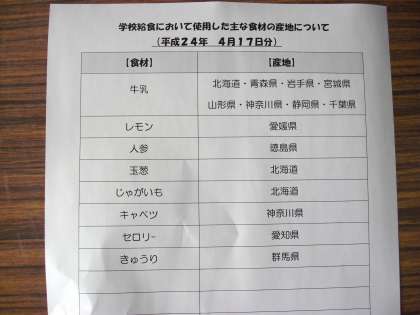 学校給食において使用した主な食材の産地について
（平成２４年　４月１７日分）
【食材】　【産地】
牛乳　北海道・青森県・岩手県・宮城県
山形県・神奈川県・静岡県・千葉県
レモン　愛媛県
人参　徳島県
玉葱　北海道
じゃがいも　北海道
キャベツ　神奈川県
セロリー　愛知県
きゅうり　群馬県